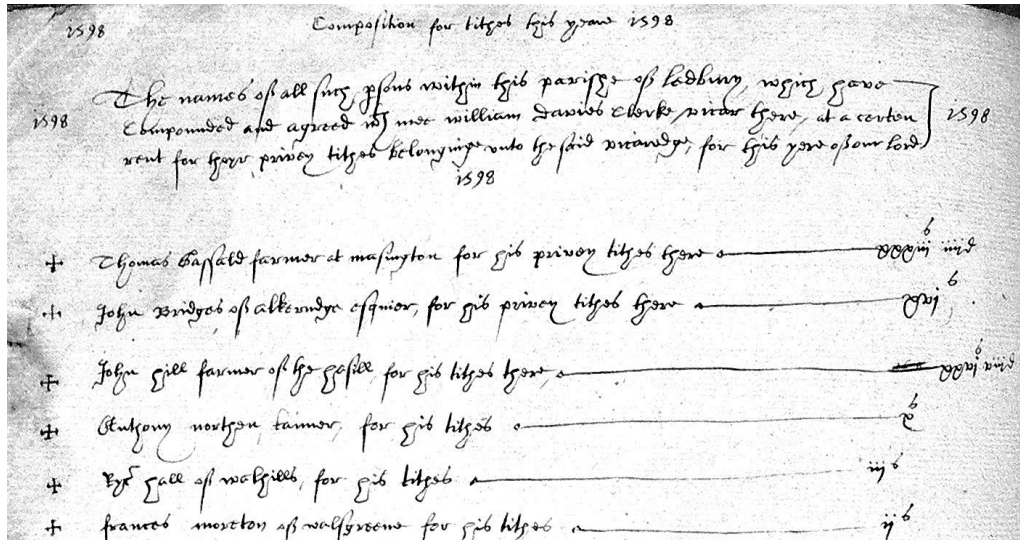 1598 Composition for tithes this yeare 1598
The names of all such psons within this parishe of ledbury, which have
1598 Compounded and agreed wth mee william davies Clerke, vicar there, at a certen 1598
rent for theyr privey tithes belonginge unto the said vicaredge, for this yere of our lord
1598
Thomas farmer at masington for his privey tithes there xxxiiis iiiid
John Bridges of alkerudge esquier, for his privey tithes there xvis
John hill farmer of the hasill, for his tithes there, xxvis viiid
Anthony northen, tanner, for his tithes xs
Ryc hall of walhills, for his tithes iiis
frances moreton of walsgreene for his tithes iis